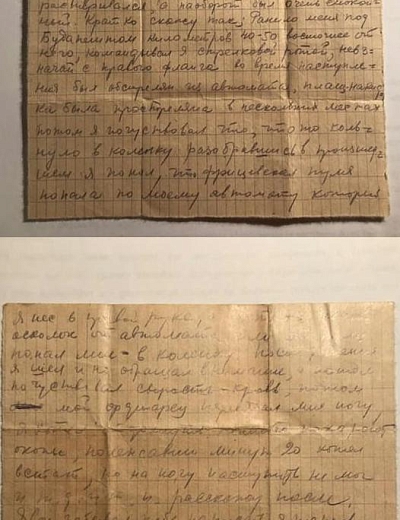 растерялся, а наоборот был очень спокой-
ней. Кратко скажу так; Ранило меня под
Будапештом километров 40-50 восточнее от
него, командовал я стрелковой ротой, невз-
начай с правого фланга во время наступле-
ния был обстрелян из автомата, плащ-палат-
ка была прострелена в нескольких местах
потом я почуствовал что, что то коль-
нуло в коленку разобравшись в происшед-
шем я понял, что фрицевская пуля
попала по моему автомату который
Я нес в правой руке, и
осколок от автомата
попал мне в коленку
я шел и не обращал внимание, а потом
почуствовал сырость - кровь, потом
мой ординарец перевязал мне ногу,
окопе, полежавши минут 20 хотел
встать, но на ногу наступить не мог
и расскажу после.